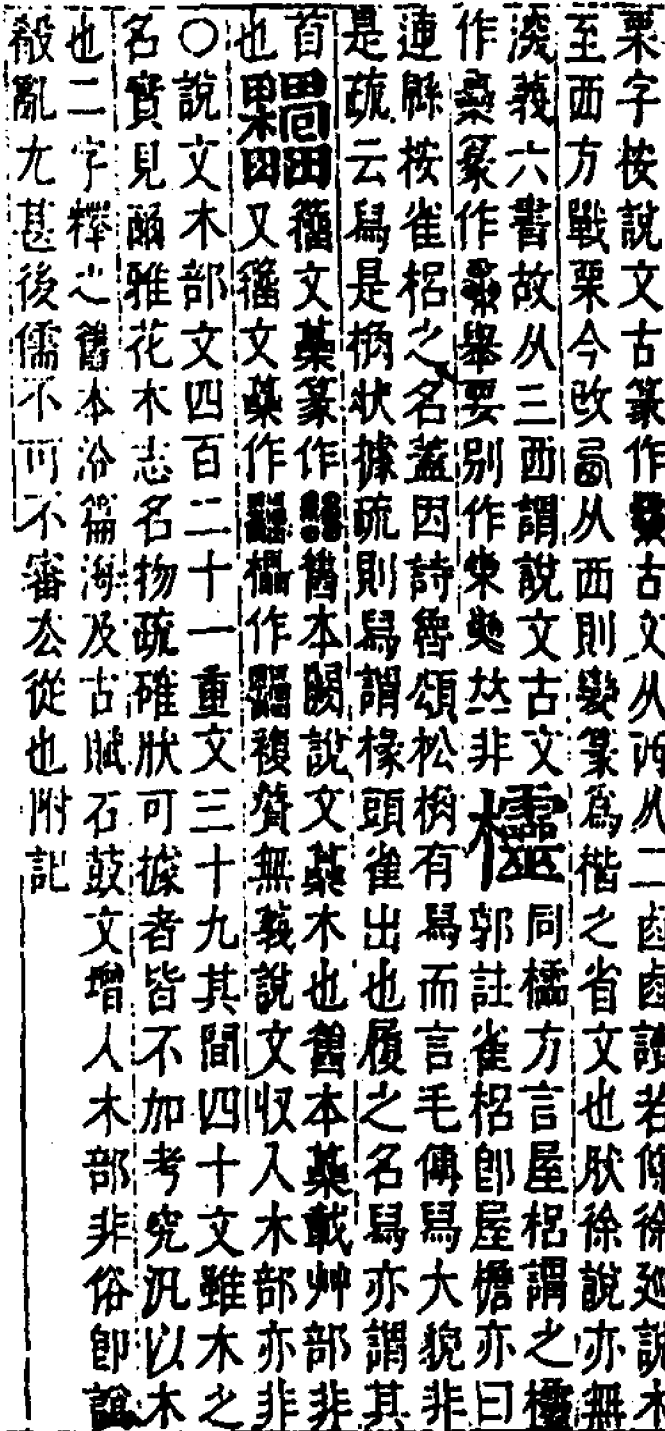 栗字按說文古篆作古文从西从二鹵鹵讀若條徐說木
至西方戰栗今改从西則變篆爲楷之省文也肰徐說亦無
深義六書故从三西謂說文古文
作㮚篆作舉要別作𠀤非
欞
同檽方言屋梠謂之欞
郭註雀梠卽屋檐亦曰
連緜按雀梠之名蓋因詩魯頌松桷有舄而言毛傳舄大貌非
是疏云舄是桷狀據疏則舄謂椽頭雀出也履之名舄亦謂其
首
也
籒文蘽篆作舊本闕說文蘽木也舊本蘽載艸部非
又籒文蘽作櫑作複贅無義說文収入木部亦非
〇說文木部文四百二十一重文三十九其間四十文雖木之
名實見爾雅花木志名物疏確狀可據者皆不加考究汎以木
也二字釋之舊本沿篇海及古賦石鼓文增入木部非俗卽譌
殽亂尢甚後儒不可不審厺從也附記